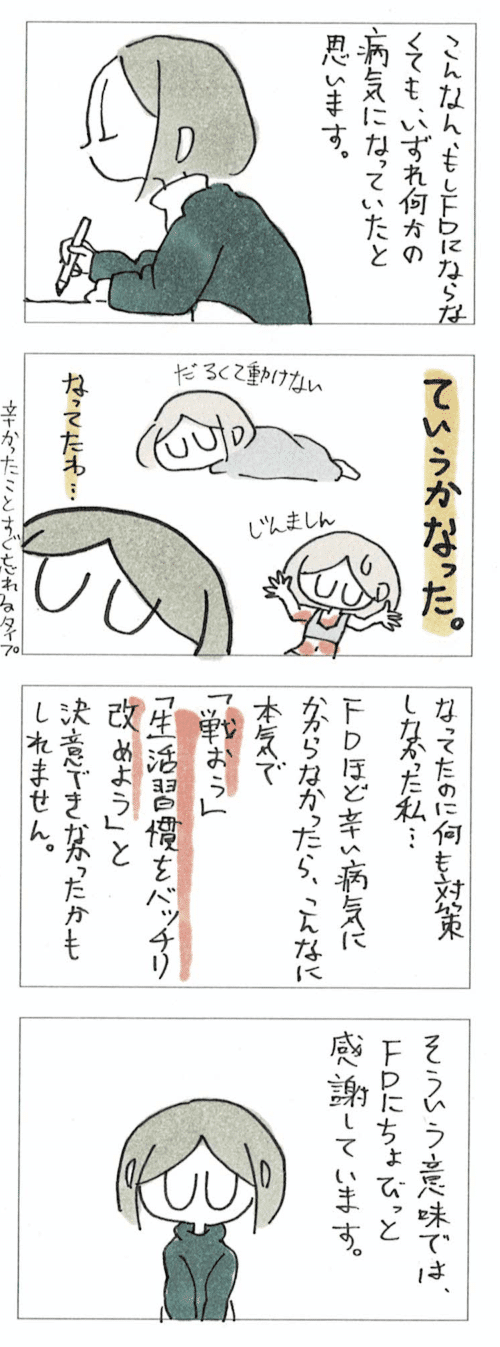 こんなん、もしFDにならな
くても、いずれ何かの
病気になっていたと
思います。
ていうかなった。
だるくて動けない
じんましん
なってたわ…
辛かったことすぐ忘れるタイプ
なってたのに何も対策
しなかった私…
FDほど辛い病気に
かからなかったら、こんなに
本気で
「戦おう」
「生活習慣をバッチリ
改めよう」と
決意できなかったかも
しれません。
そういう意味では、
FDにちょびっと
感謝しています。